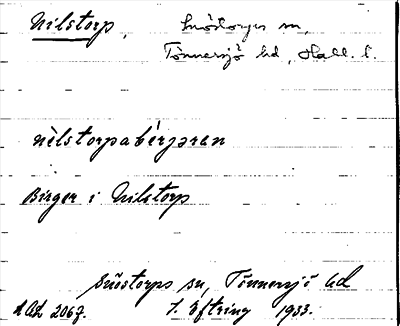 Nilstorp, Snöstorps sn,
Tönnersjö hd, Hall. l.
nilstorpabérgəran
Birger i Nilstorp
Snöstorps sn, Tönnersjö hd
AOL 2067. J. Eftring 1933.